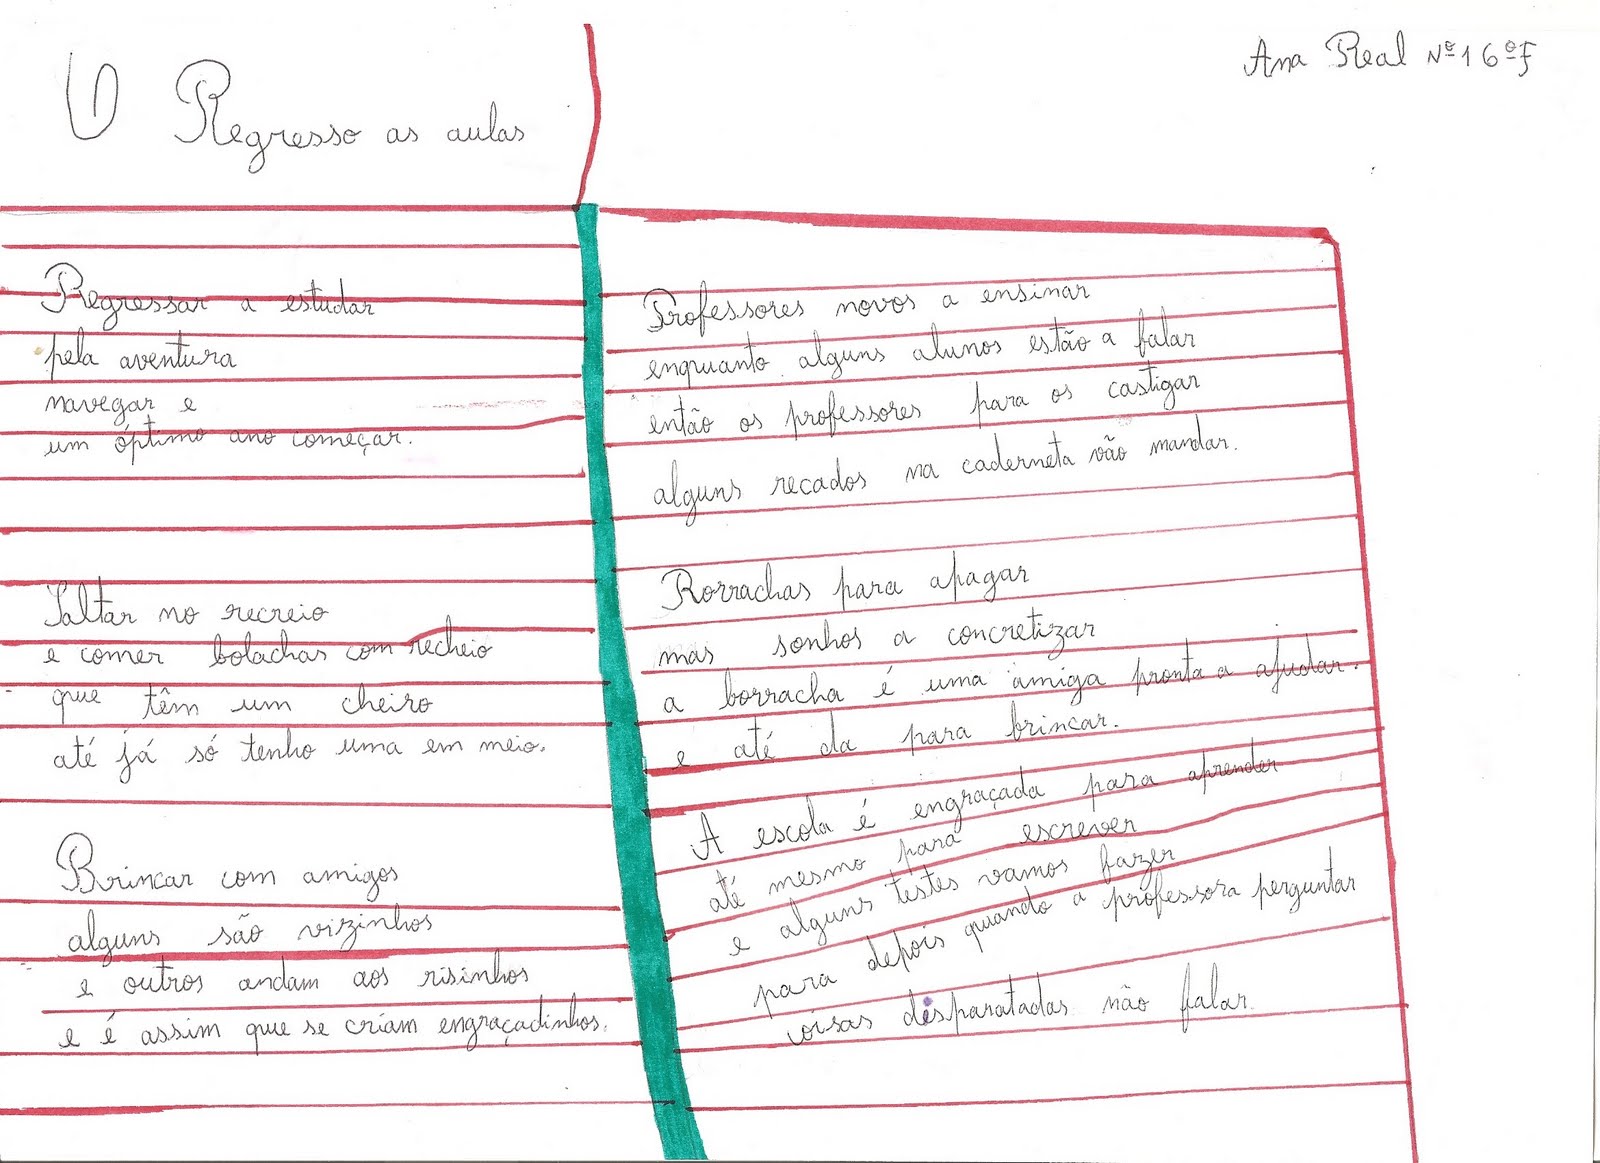 O Regresso as aulas
Ana Real Nº1 6ºF
Regressar a estudar
pela aventura
navegar e
um óptimo ano começar.
Saltar no recreio
e comer bolachas com recheio
que têm um cheiro
até já só tenho uma em meio.
Brincar com amigos
alguns são vizinhos
e outros andam aos risinhos
e é assim que se criam engraçadinhos.
Professores novos a ensinar
enquanto alguns alunos estão a falar
então os professores para os castigar
alguns recados na caderneta vão mandar.
Borrachas para apagar
mas sonhos a concretizar
a borracha é uma amiga pronta a ajudar.
e até da para brincar.
A escola é engraçada para aprender
até mesmo para escrever
e alguns testes vamos fazer
para depois quando a professora perguntar
coisas disparatadas não falar.